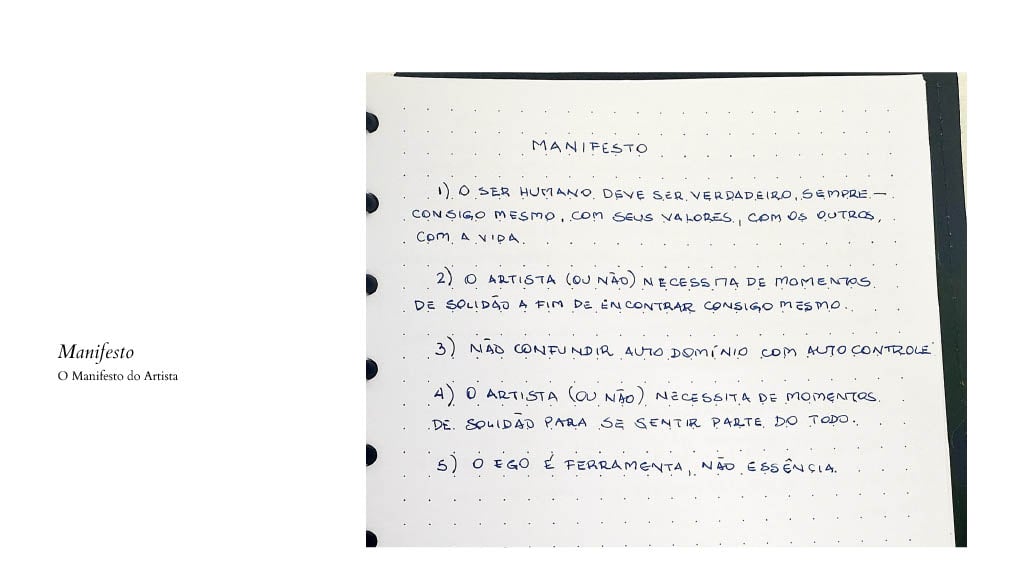 Manifesto
O Manifesto do Artista
MANIFESTO
1) O SER HUMANO DEVE SER VERDADEIRO, SEMPRE —
CONSIGO MESMO, COM SEUS VALORES, COM OS OUTROS,
COM A VIDA.
2) O ARTISTA (OU NÃO) NECESSITA DE MOMENTOS
DE SOLIDÃO A FIM DE ENCONTRAR CONSIGO MESMO.
3) NÃO CONFUNDIR AUTO DOMÍNIO COM AUTO CONTROLE
4) O ARTISTA (OU NÃO) NECESSITA DE MOMENTOS
DE SOLIDÃO PARA SE SENTIR PARTE DO TODO.
5) O EGO É FERRAMENTA, NÃO ESSÊNCIA.